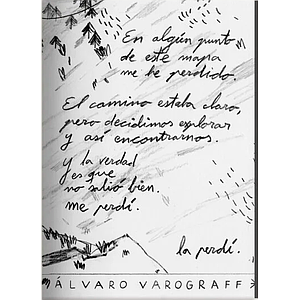 En algún punto
de este mapa
me he perdido.
El camino estaba claro,
pero decidimos explorar
y así encontrarnos.
Y la verdad
es que
no salió bien.
me perdí.
la perdí.
ÁLVARO VAROGRAFF